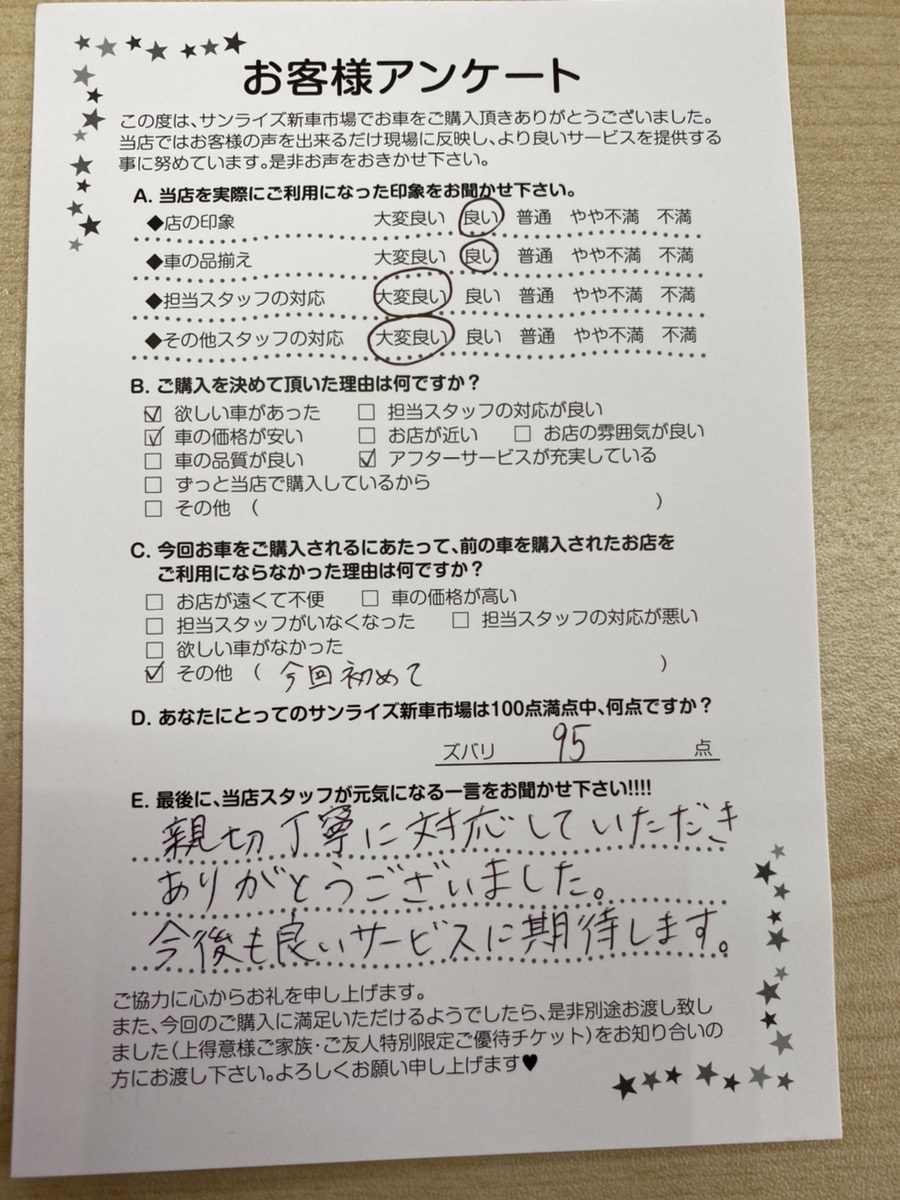 お客様アンケート
この度は、サンライズ新車市場でお車をご購入頂きありがとうございました。
当店ではお客様の声を出来るだけ現場に反映し、より良いサービスを提供する
事に努めています。是非お声をおきかせ下さい。
A. 当店を実際にご利用になった印象をお聞かせ下さい。
◆店の印象 大変良い 良い 普通 やや不満 不満
◆車の品揃え 大変良い 良い 普通 やや不満 不満
◆担当スタッフの対応 大変良い 良い 普通 やや不満 不満
◆その他スタッフの対応 大変良い 良い 普通 やや不満 不満
B. ご購入を決めて頂いた理由は何ですか？
☑ 欲しい車があった □ 担当スタッフの対応が良い
☑ 車の価格が安い □ お店が近い □ お店の雰囲気が良い
□ 車の品質が良い ☑ アフターサービスが充実している
□ ずっと当店で購入しているから
□ その他 ( )
C. 今回お車をご購入されるにあたって、前の車を購入されたお店を
ご利用にならなかった理由は何ですか？
□ お店が遠くて不便 □ 車の価格が高い
□ 担当スタッフがいなくなった □ 担当スタッフの対応が悪い
□ 欲しい車がなかった
☑ その他 ( 今回初めて )
D. あなたにとってのサンライズ新車市場は100点満点中、何点ですか？
ズバリ 95 点
E. 最後に、当店スタッフが元気になる一言をお聞かせ下さい!!!!
親切丁寧に対応していただき
ありがとうございました。
今後も良いサービスに期待します。
ご協力に心からお礼を申し上げます。
また、今回のご購入に満足いただけるようでしたら、是非別途お渡し致し
ました（上得意様ご家族・ご友人特別限定ご優待チケット）をお知り合いの
方にお渡し下さい。よろしくお願い申し上げます♥